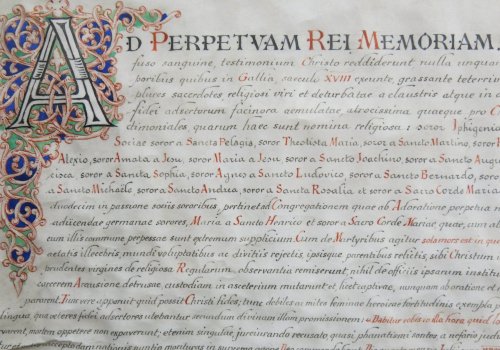 AD PERPETVAM REI MEMORIAM.
fuso sanguine, testimonium Christo reddiderunt nulla unquam
poribus quibus in Gallia, saeculo XVIII exeunte, grassante
plures sacerdotes religiosi viri et deturbatae a claustris atque in
fidei adsertorum facinora aemulatae, atrocissima quaeque, pro
timoniales, quarum haec sunt nomina religiosa: soror Iphigenia
Sociae soror a Sancta Pelagia, soror Theolista Maria, soror a Sancto Martino, soror
Alexio, soror Amata a Jesu, soror Maria a Jesu, soror a Sancto Joachino, soror a Sancto
cisca, soror a Sancta Sophia, soror Agnes a Sancto Ludovico, soror a Sancto Bernardo, soror
a Sancto Michaële soror a Sancto Andrea, soror a Sancta Rosalia et soror a Sacro Corde Mariae
duodecim in passione sociis sororibus, pertinet ad Congregationem quae ab Adoratione perpetua
adiiciendae germanae sorores, Maria a Sancto Henrico et a Sacro Corde Mariae quae, cum
cum illis commune perpessae sunt extremum supplicium. Cum de Martyribus agitur solamores est in
aetatis illecebris, mundi voluptatibus ac divitiis rejectis, ipsisque parentibus relictis sibi Christum
prudentes virgines de religiosa Regularum observantia remiserunt, nihil de officiis ipsorum
carcerem Arausione detrusae, custodiam in asceterium mutarunt et, licet captivae, nunquam ab oratione et
pararent. Tunc vere apparuit quid possit Christi fides; tunc debiles ac mites feminae heroinae fortitudinis
qua veteres fidei adsertores utebantur secundum divinam illam promissionem: «Dabitur vobis in illa hora quid
varent, mortem oppetere non expaverunt; etenim singulae, jusiurandum recusato quasi phanatismi sontes